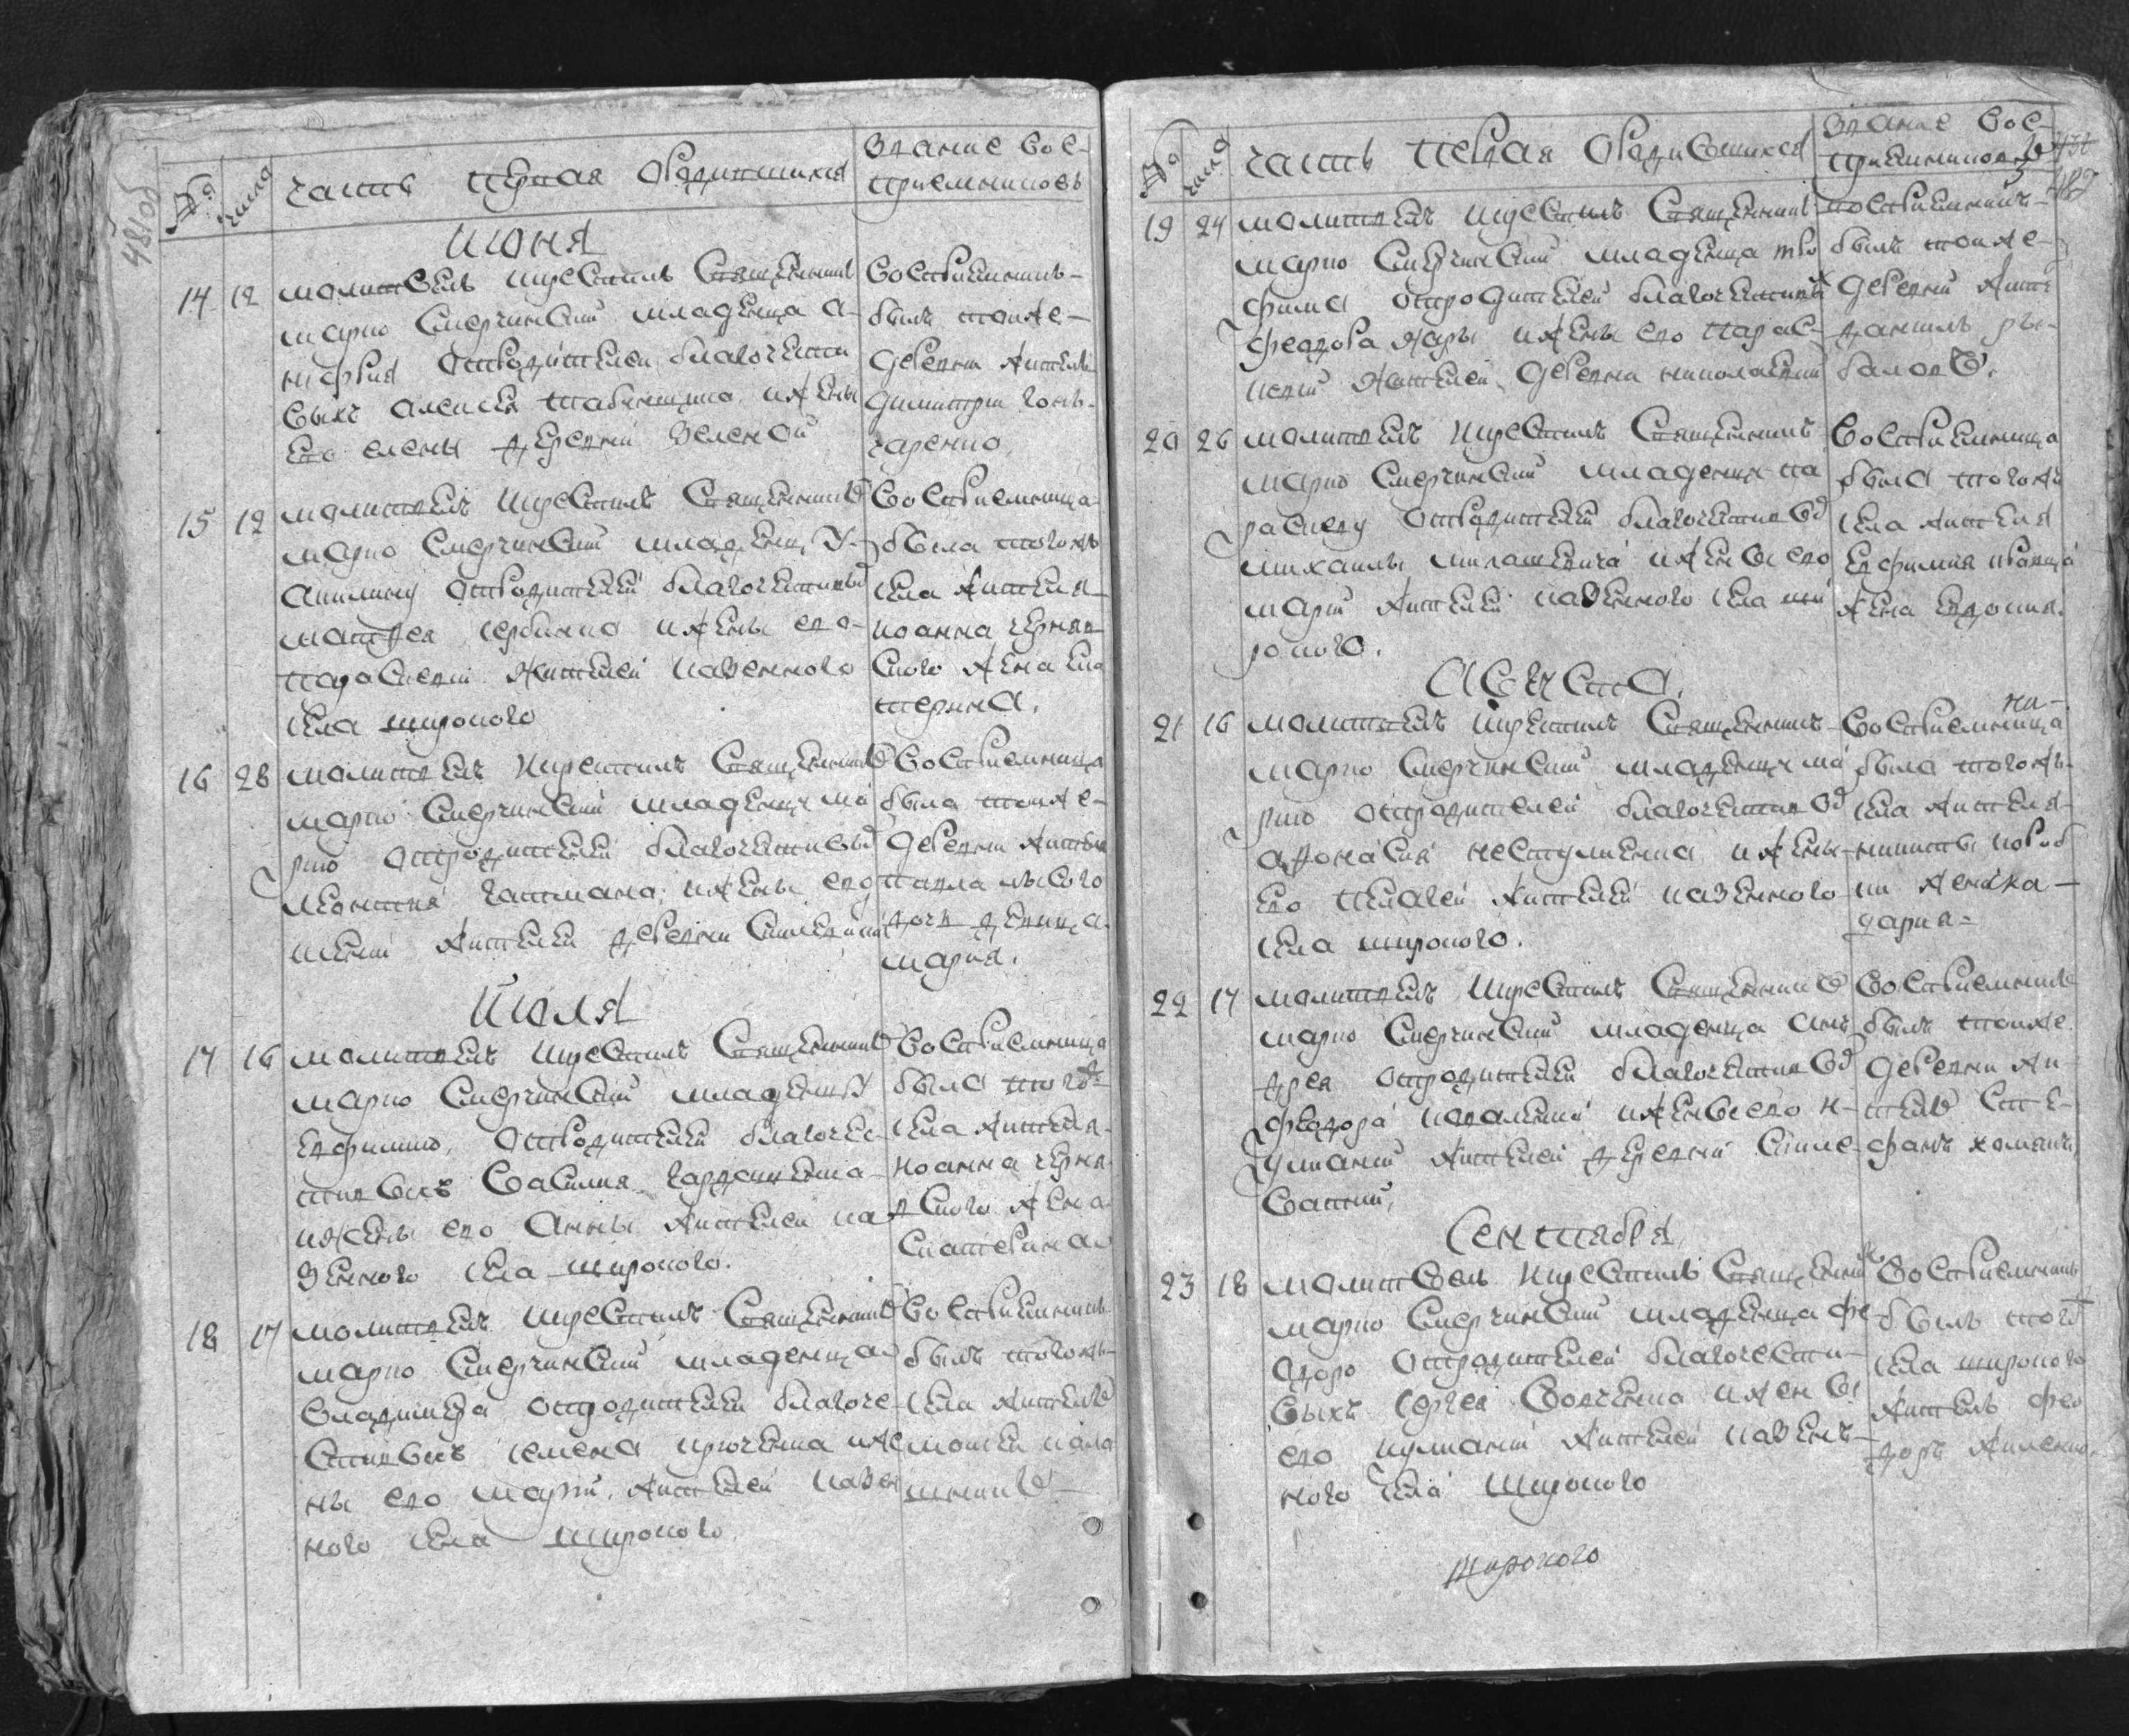 481об
№ числа часть первая ѡродившихся
звание вос-
приемниковъ
июня
14 12 молитвелъ икрестилъ священникъ
марко смерчинский младенца о-
нуфрия отродителей благочести
выхъ алексея таб и жены
его елены деревни зеленой
восприемникъ
былъ тояже
деревни житель
димитрий гонь-
чаренко
15 12 молитвелъ икрестилъ священникъ
марко смерчинский младенц
акилину отродителей благочестивых
матфея и жены его
параскевии жителей казенного
села широкого
восприемница
была тогожъ
села жителя
иоанна черняв
ского жена ека
терина.
16 28 молитвелъ икрестилъ священникъ
марко смерчинский младенцу ма
рию отродителей благочестивых
леонтия гатмана, и жены его
жителей деревни
восприемница
была тояже
деревни жителя
павла лысого
дочь девица
мария.
июля
17 16 молитвелъ икрестилъ священникъ
марко смерчинский младенцу
евфимию, отродителей благочес-
тивыхъ василия
и жены его анны жителей ка
зенного села широкого.
восприемница
была тогожъ
села жителя
иоанна черня
вского жена
екатерина
18 17 молитвелъ икрестилъ священникъ
марко смерчинский младенца
владимира отродителей благоче
стивыхъ семена и же
ны его марии, жителей казен
ного села широкого
восприемникъ
былъ тогожъ
села житель
моисей
№ числа часть первая ѡродившихся
звание вос
приемниковъ
482
19 24 молитвелъ икрестилъ священникъ
марко смерчинский младенца тро
фима отродителей благочестивых
феодора жары и жены его парас-
кевии жителей деревни николаевки
восприемникъ
былъ тояже
деревни жите
даниилъ ры-
баловъ.
20 26 молитвелъ икрестилъ священникъ
марко смерчинский младенца па
раскеву отродителей благочестивых
михаила милашевича и жены его
марии жителей казенного села ши
рокого.
восприемница
была тогожъ
села жителя
евфимия кравца
жена евдокия.
августа.
21 16 молитвелъ икрестилъ священникъ
марко смерчинский младенцу ма
рию отродителей благочестивых
афонасия нестуленка и жены
его пелагеи жителей казенного
села широкого.
восприемница
была тогожъ
села жителя
никиты короб
ки женка
дария
22 17 молитвелъ икрестилъ священникъ
марко смерчинский младенца анъ
дрея отродителей благочестивых
феодора коваленка и жены его и-
улиании жителей деревни силе-
ватки,
восприемникъ
былъ тояже
деревни жи-
тель сте-
фанъ
сентября
23 18 молитвелъ икрестилъ священникъ
марко смерчинский младенца фе
одора отродителей благочести-
выхъ сергея волченка и жены
его иулиании жителей казенъ-
ного села широкого
восприемникъ
былъ тогожъ
села широкого
житель фео
доръ
широкого